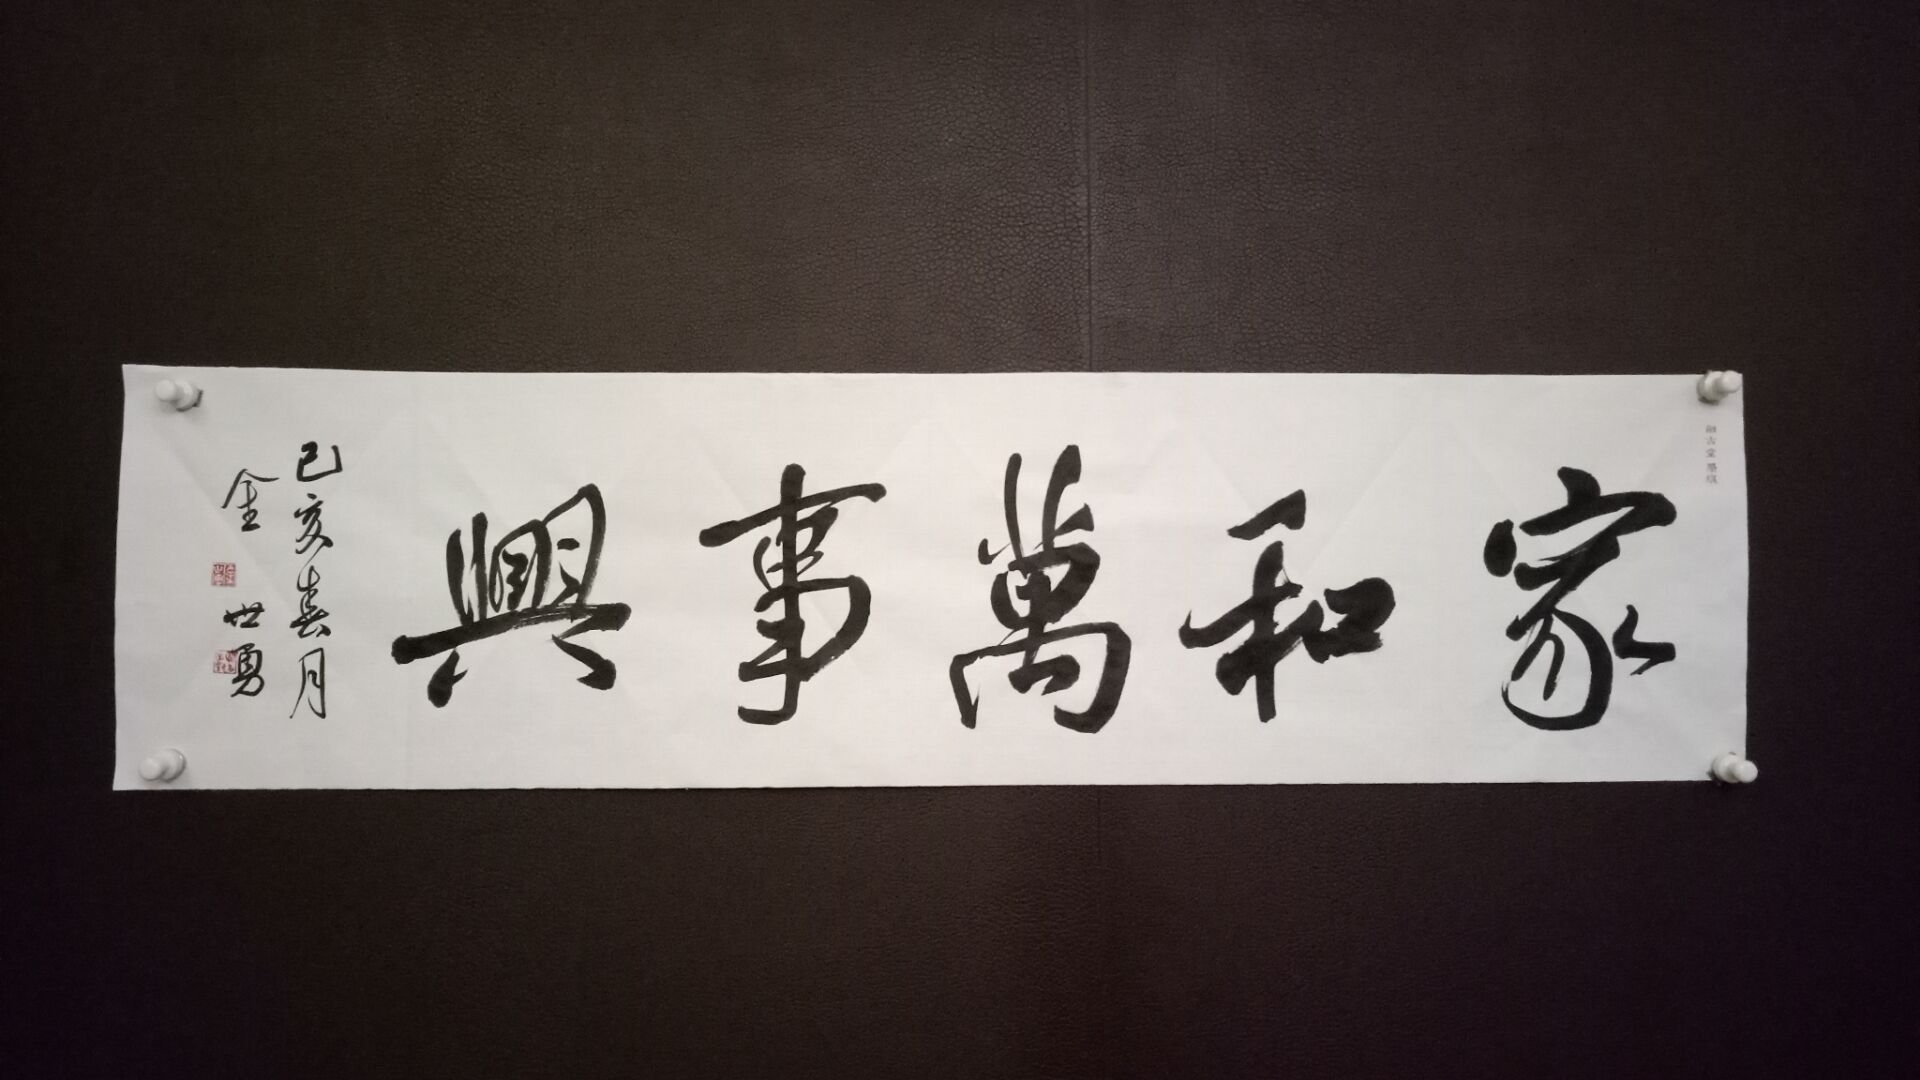 家和萬事興
己亥春月
金世勇